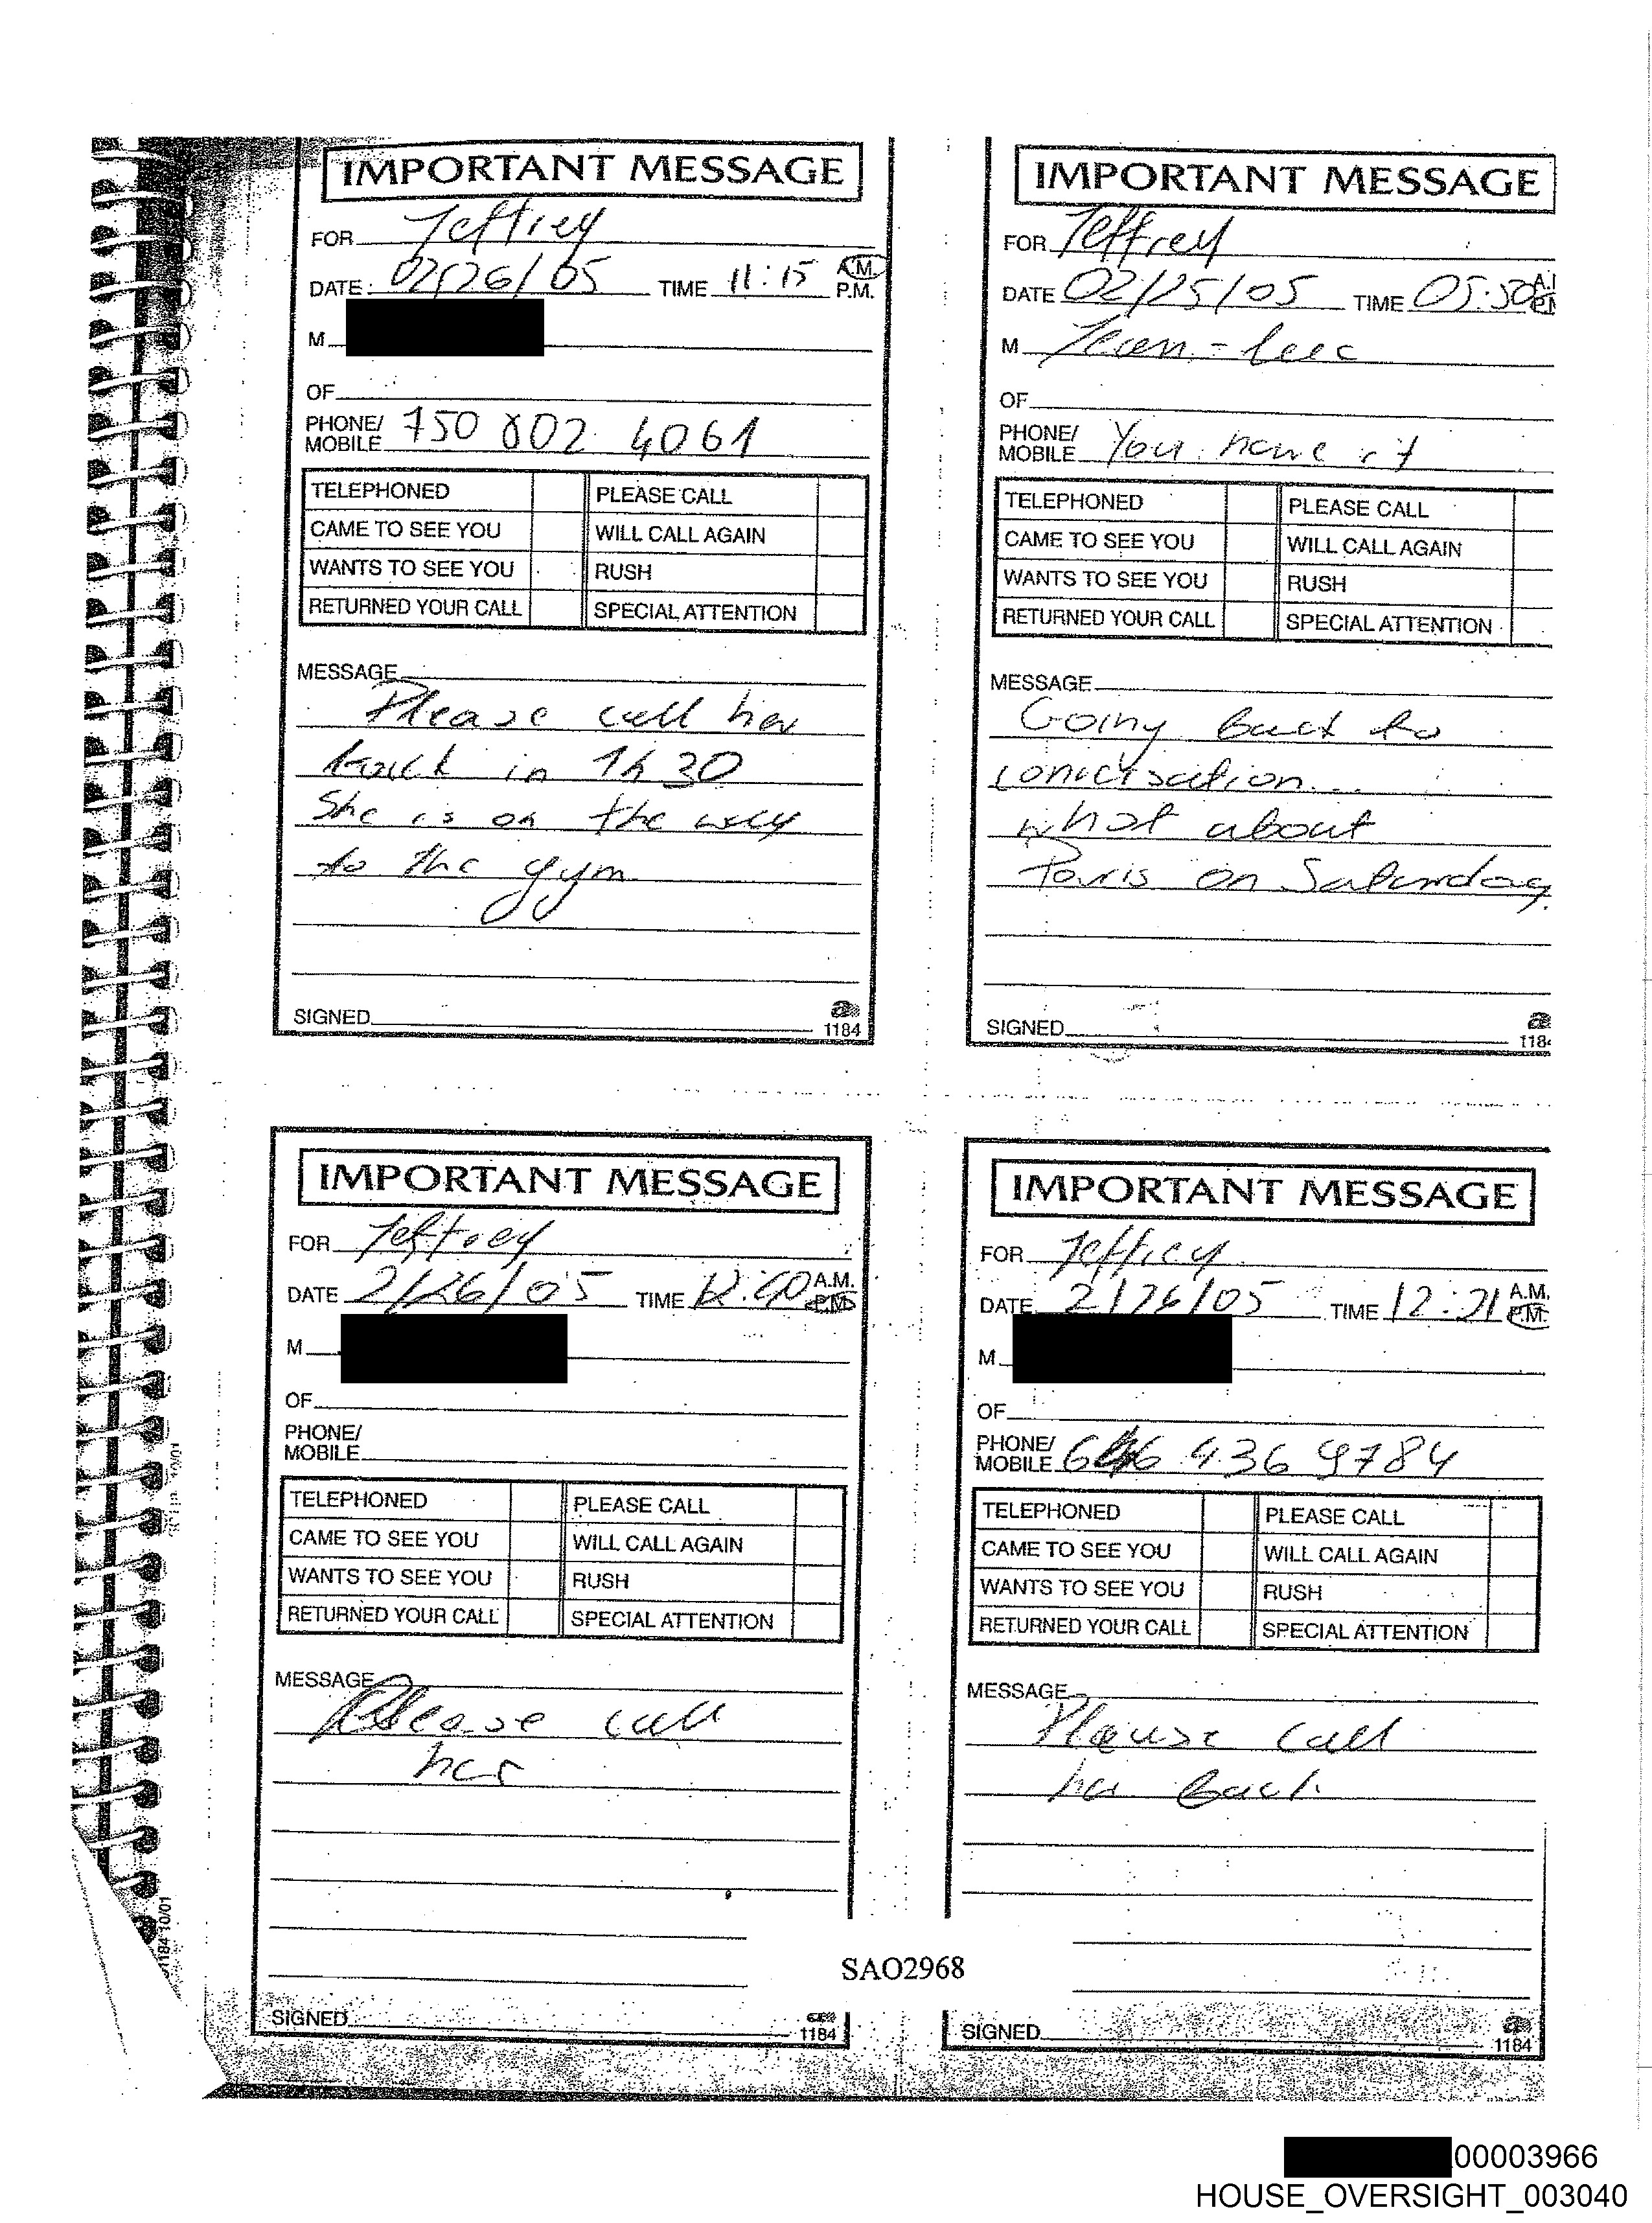 IMPORTANT MESSAGE
FOR Jeffrey
DATE: 02/26/05 TIME 11:15 A.M. P.M.
M
OF
PHONE/ MOBILE 750 802 4061
TELEPHONED PLEASE CALL
CAME TO SEE YOU WILL CALL AGAIN
WANTS TO SEE YOU RUSH
RETURNED YOUR CALL SPECIAL ATTENTION
MESSAGE
Please call her
back in 1h30
She is on the way
to the gym
SIGNED
1184
IMPORTANT MESSAGE
FOR Jeffrey
DATE 02/25/05 TIME 05:50
M Jean-Luc
OF
PHONE/ MOBILE You have it
TELEPHONED PLEASE CALL
CAME TO SEE YOU WILL CALL AGAIN
WANTS TO SEE YOU RUSH
RETURNED YOUR CALL SPECIAL ATTENTION
MESSAGE
Going back to
what about
Paris on Saturday
SIGNED
118
IMPORTANT MESSAGE
FOR Jeffrey
DATE 2/26/05 TIME A.M. P.M.
M
OF
PHONE/
MOBILE
TELEPHONED PLEASE CALL
CAME TO SEE YOU WILL CALL AGAIN
WANTS TO SEE YOU RUSH
RETURNED YOUR CALL SPECIAL ATTENTION
MESSAGE
Please call
her
SIGNED
1184
IMPORTANT MESSAGE
FOR Jeffrey
DATE 2/26/05 TIME 12:21 A.M. P.M.
M
OF
PHONE/ MOBILE 646 436 9784
TELEPHONED PLEASE CALL
CAME TO SEE YOU WILL CALL AGAIN
WANTS TO SEE YOU RUSH
RETURNED YOUR CALL SPECIAL ATTENTION
MESSAGE
Please call
her back
SIGNED
1184
1184 10/01
SAO2968
00003966
HOUSE_OVERSIGHT_003040